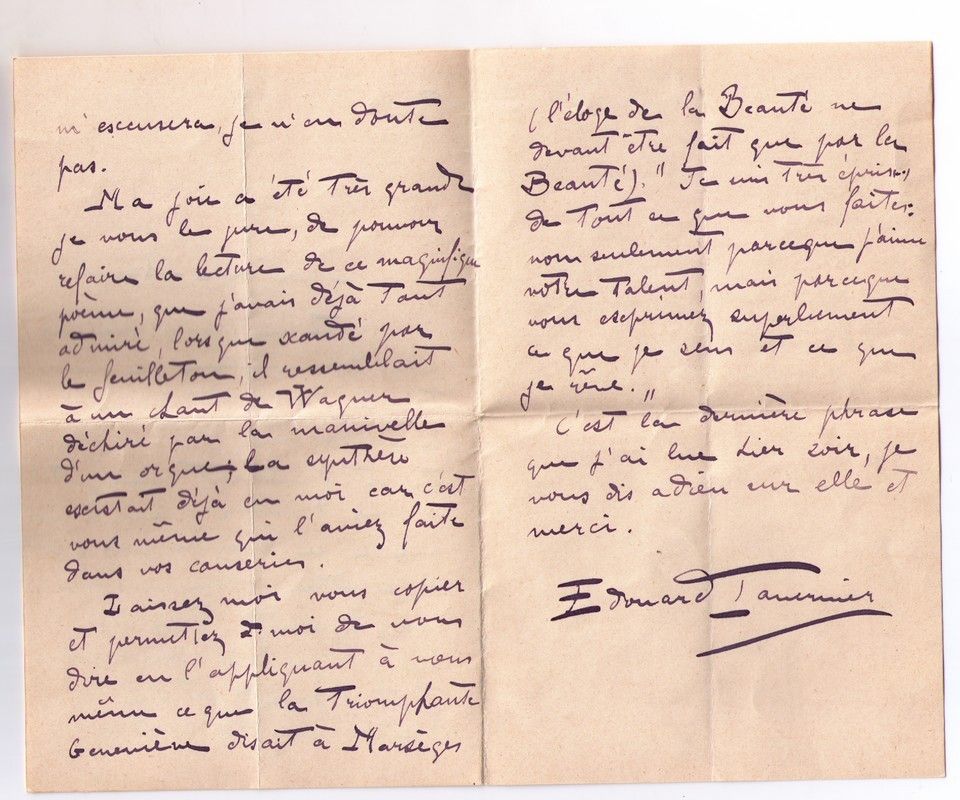 m'excusera, je n'en doute
pas.
Ma joie a été très grande
je vous le jure, de pouvoir
refaire la lecture de ce magnifique
poème, que j'avais déjà tant
admiré, lorsque par
le feuilleton, il ressemblait
à un chant de Wagner
déchiré par la manivelle
d'un orgue; La synthèse
existait déjà en moi car c'est
vous même qui l'aviez faite
dans vos causeries.
Laissez moi vous copier
et permettez moi de vous
dire en l'appliquant à vous
même ce que la Triomphante
Geneviève disait à Marsèges
(l'éloge de la Beauté ne
devant être fait que par la
Beauté)." Je suis très éprise
de tout ce que vous faites:
non seulement parceque j'aime
vôtre talent, mais parceque
vous exprimez superbement
ce que je sens et ce que
je rêve."
C'est la dernière phrase
que j'ai lue hier soir, je
vous dis adieu sur elle et
merci.
Edouard Tavernier